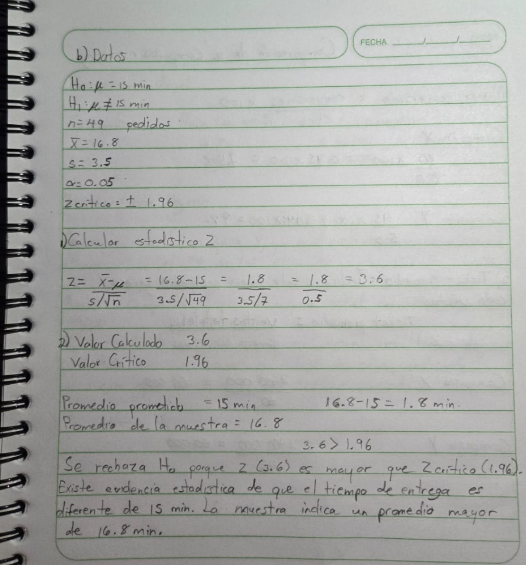 b) Datos
FECHA / /
H₀: μ = 15 min
H₁: μ ≠ 15 min
n=49 pedidos
x̄=16.8
s=3.5
α=0.05
Z critico = ± 1.96
1) Calcular estadistico Z
Z = (x̄-μ)/(s/√n) = (16.8-15)/(3.5/√49) = 1.8/(3.5/7) = 1.8/0.5 = 3.6
2) Valor Calculado 3.6
Valor Critico 1.96
Promedio prometido = 15 min 16.8-15 = 1.8 min.
Promedio de la muestra = 16.8
3.6 > 1.96
Se rechaza H₀ porque Z (3.6) es mayor que Z critico (1.96).
Existe evidencia estadistica de que el tiempo de entrega es
diferente de 15 min. La muestra indica un promedio mayor
de 16.8 min.